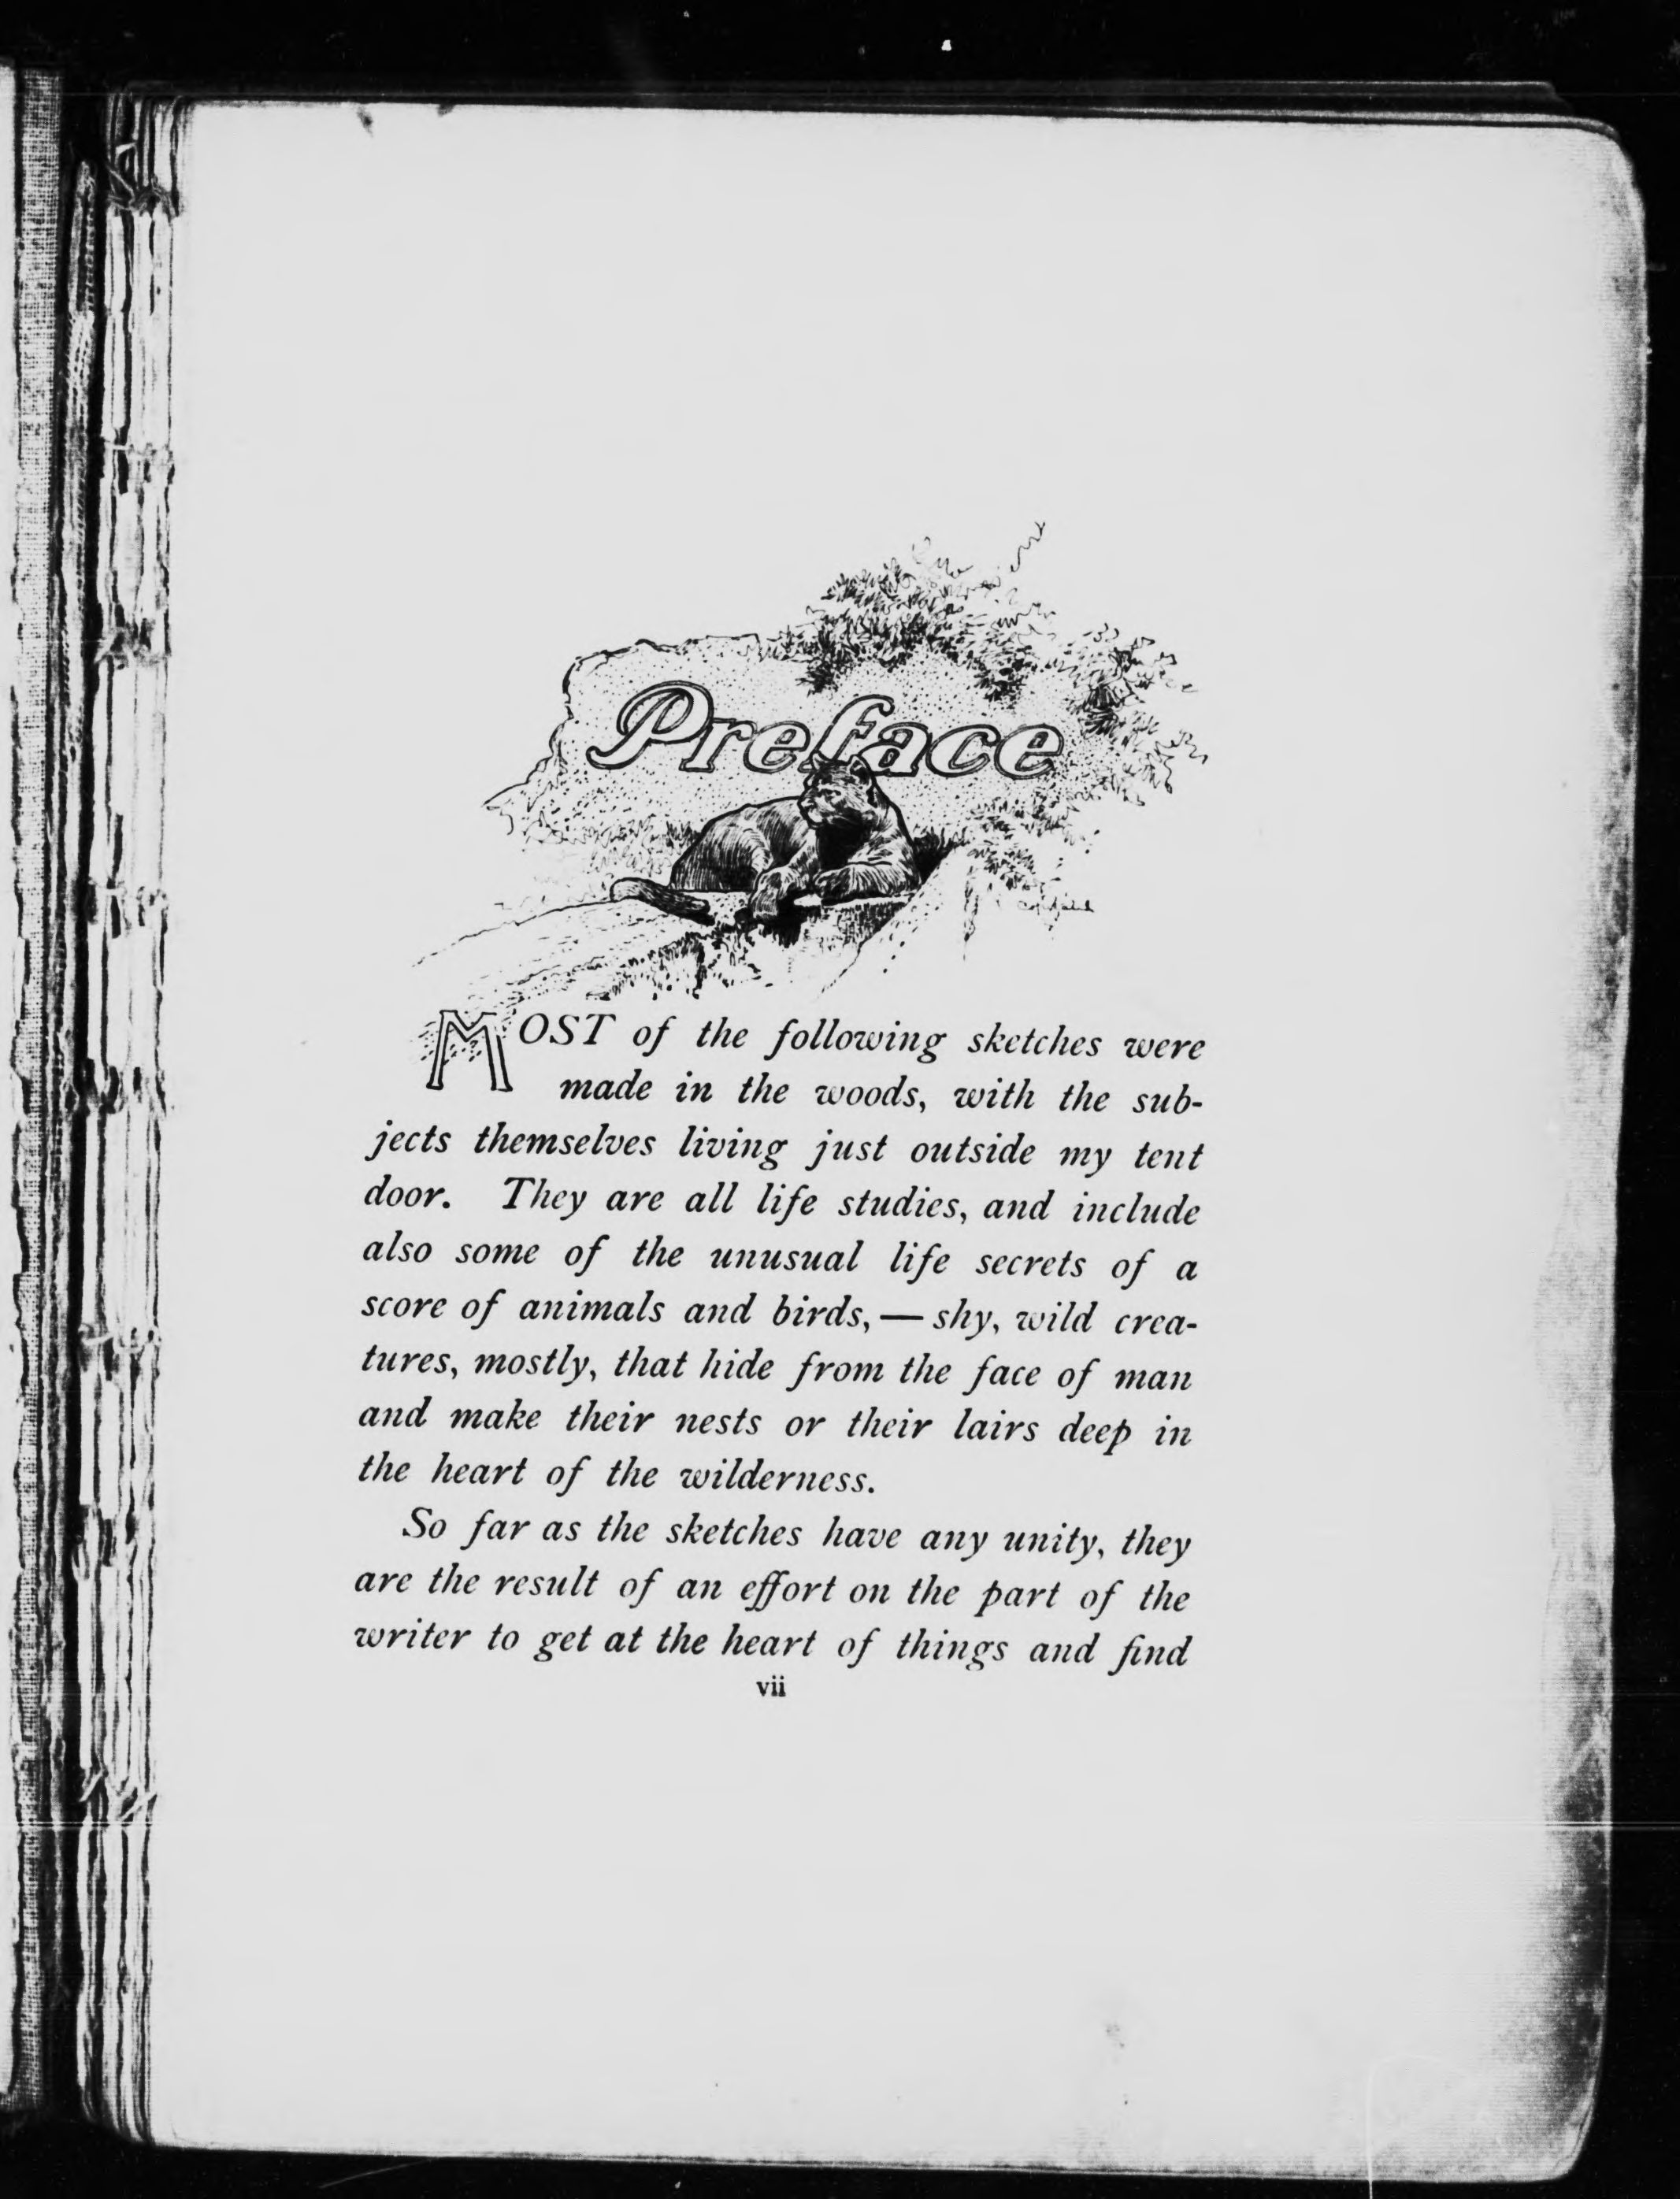 Preface
MOST of the following sketches were
made in the woods, with the sub-
jects themselves living just outside my tent
door. They are all life studies, and include
also some of the unusual life secrets of a
score of animals and birds, — shy, wild crea-
tures, mostly, that hide from the face of man
and make their nests or their lairs deep in
the heart of the wilderness.
So far as the sketches have any unity, they
are the result of an effort on the part of the
writer to get at the heart of things and find
vii